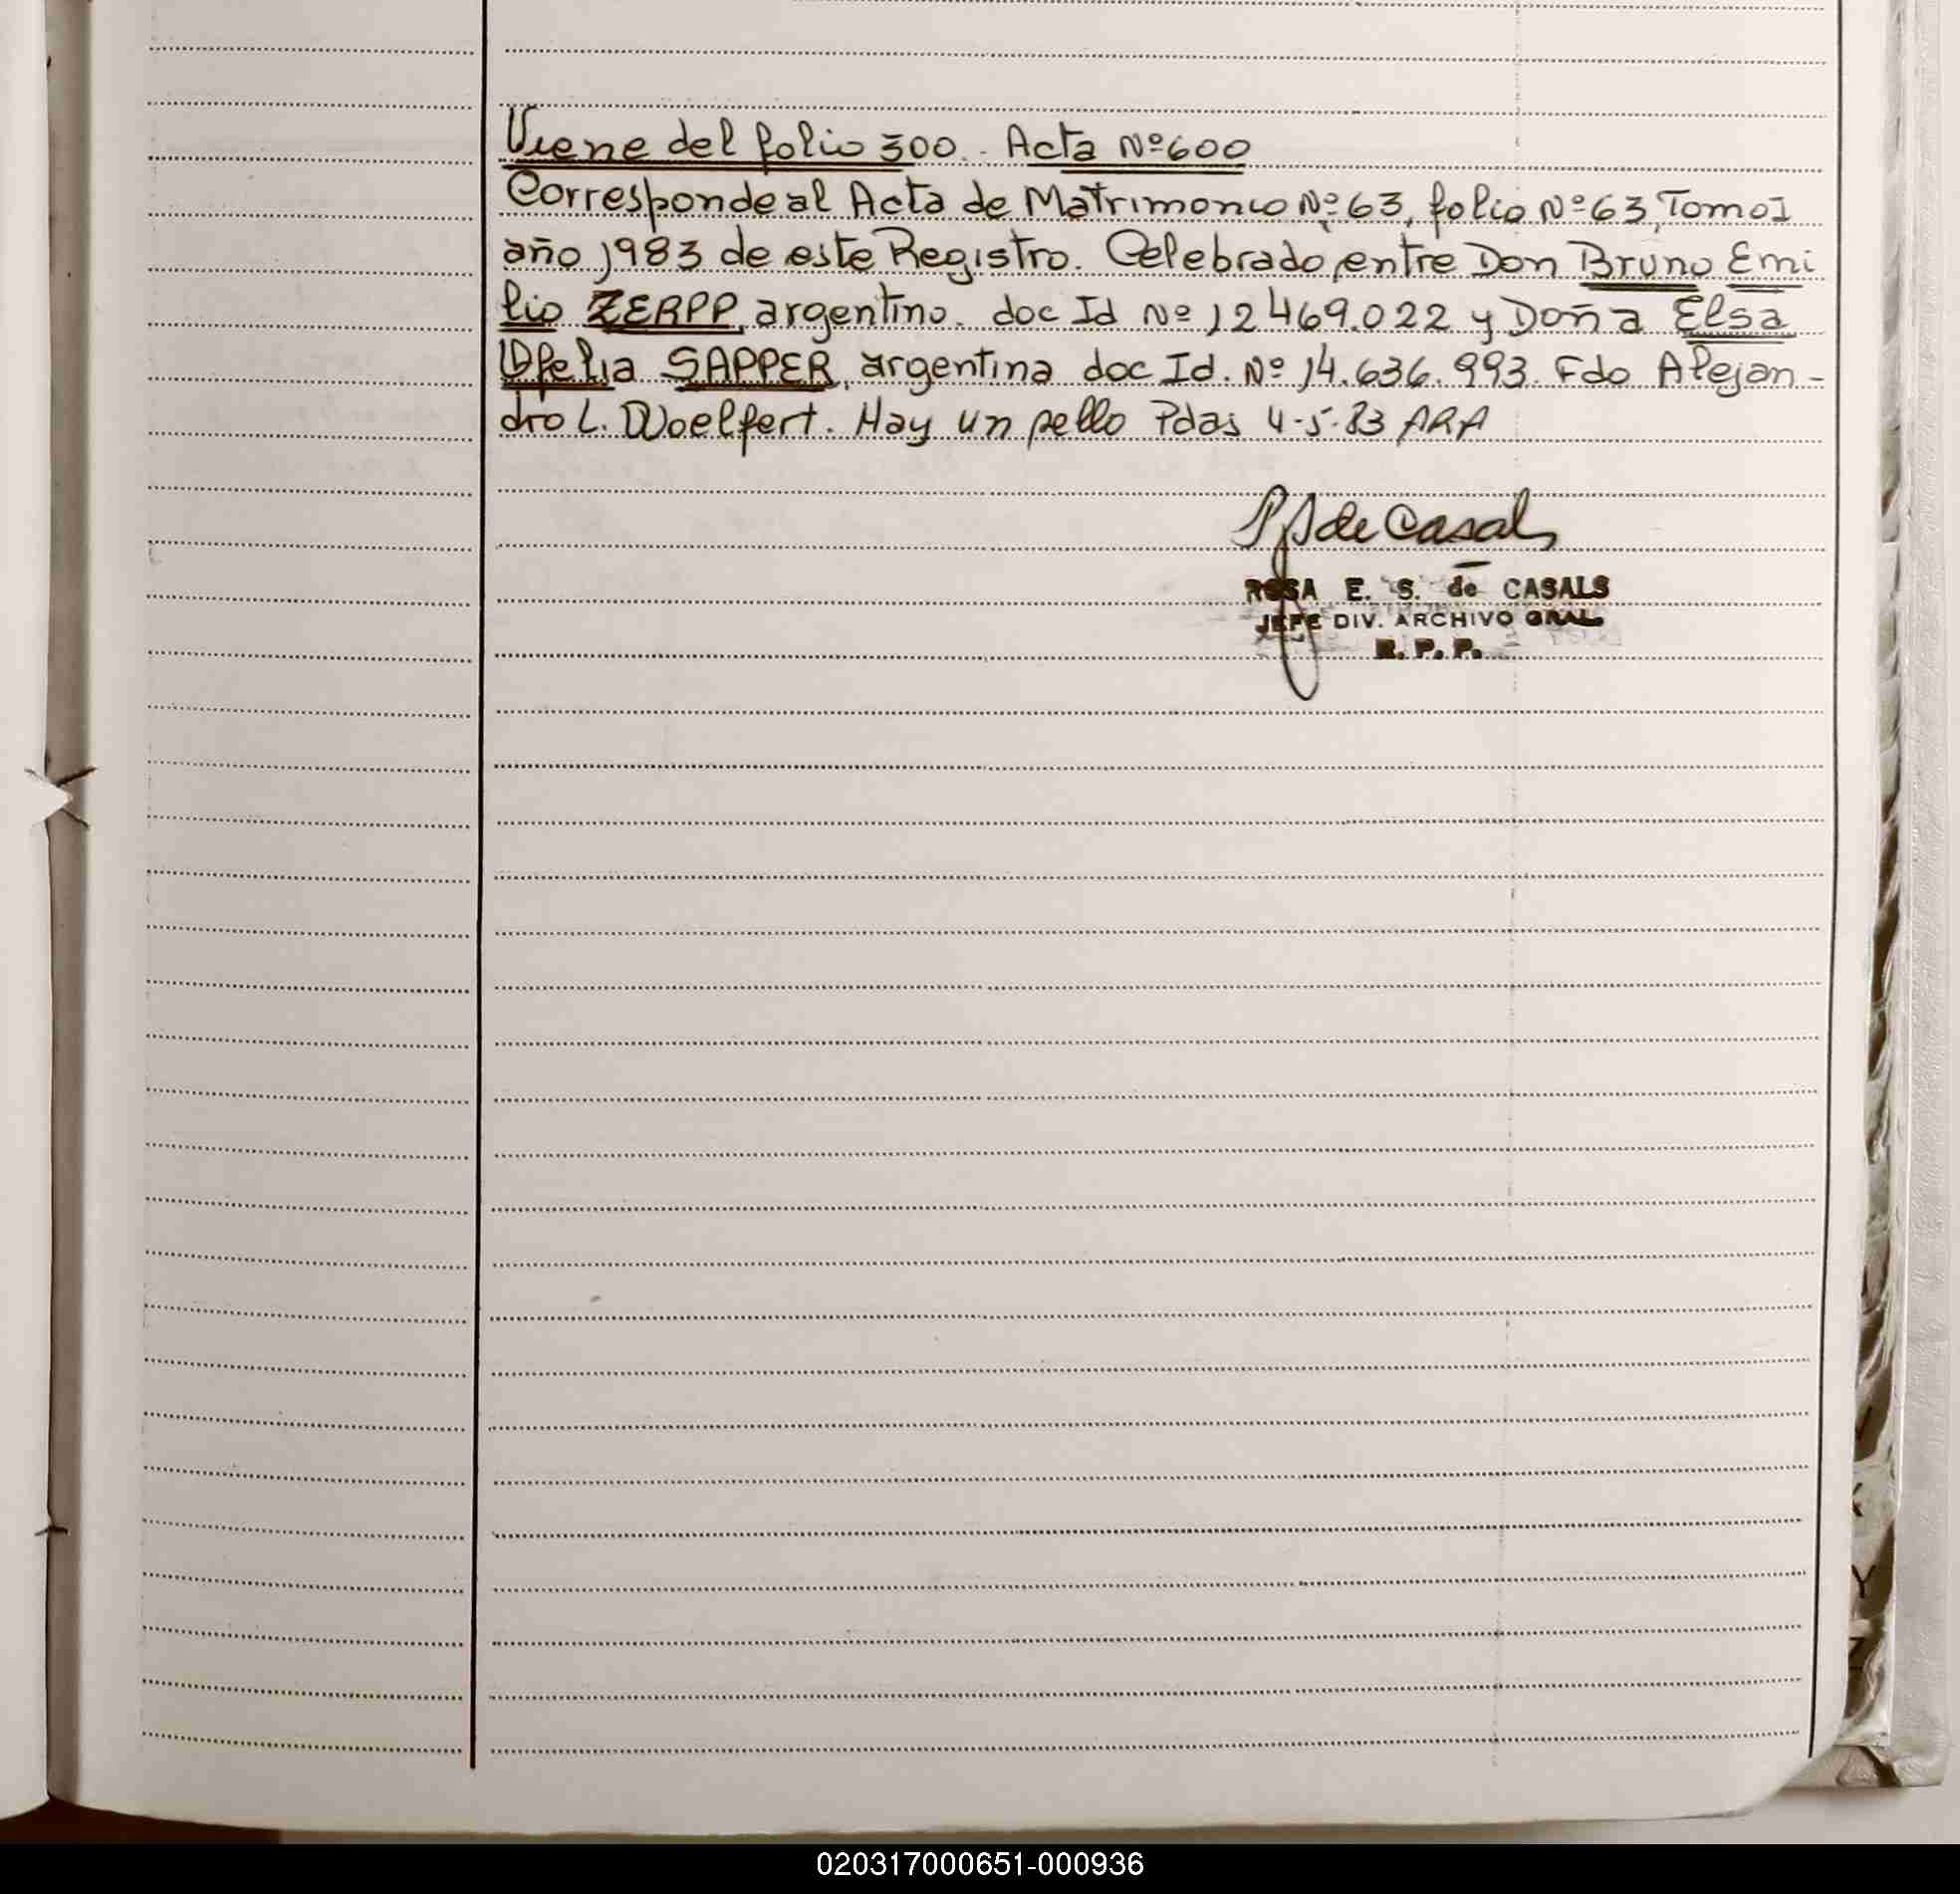 Viene del folio 300. - Acta Nº 600
Corresponde al Acta de Matrimonio Nº 63, folio Nº 63, Tomo I
año 1983 de este Registro. Celebrado, entre Don Bruno Emi
lio ZERPP, argentino. doc Id Nº 12469.022 y Doña Elsa
Ofelia SAPPER, argentina doc Id. Nº 14.636.993. Fdo Alejan-
dro L. Woelfert. Hay un sello Pdas 4-5-83 ARA
de Casals
ROSA E. S. de CASALS
JEFE DIV. ARCHIVO GRAL
R. P. P.
Y
Z
020317000651-000936